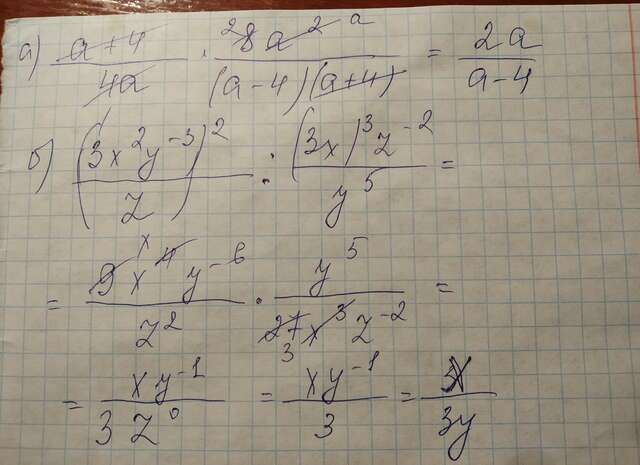 а) (a+4)/(4a) · (²8a² ᵃ)/((a-4)(a+4)) = 2a/(a-4)
б) ((3x²y⁻³)/z)² : ((3x)³z⁻²)/y⁵ =
= (9x⁴ ˣ y⁻⁶)/z² · y⁵/(27 ₃ x³z⁻²) =
= (xy⁻¹)/(3z⁰) = (xy⁻¹)/3 = x/(3y)